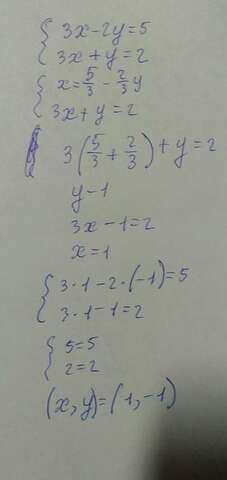 3x-2y=5
3x+y=2
x=5/3-2/3y
3x+y=2
3(5/3+2/3)+y=2
y-1
3x-1=2
x=1
3·1-2·(-1)=5
3·1-1=2
5=5
2=2
(x,y)=(1,-1)